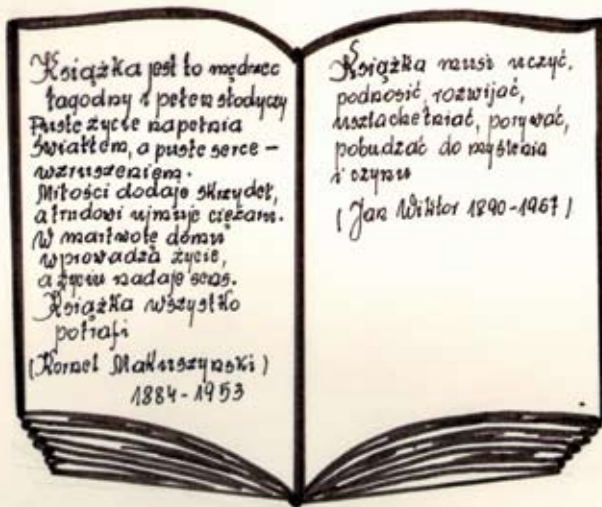 Książka jest to mędrzec
łagodny i pełen słodyczy
Puste życie napełnia
światłem, a puste serce –
wzruszeniem.
Miłości dodaje skrzydeł,
a trudowi ujmuje ciężaru.
W martwotę domu
wprowadza życie,
a życiu nadaje sens.
Książka wszystko
potrafi
(Kornel Makuszyński)
1884-1953
Książka musi uczyć,
podnosić, rozwijać,
uszlachetniać, porywać,
pobudzać do myślenia
i czynu
(Jan Wiktor 1890-1967)